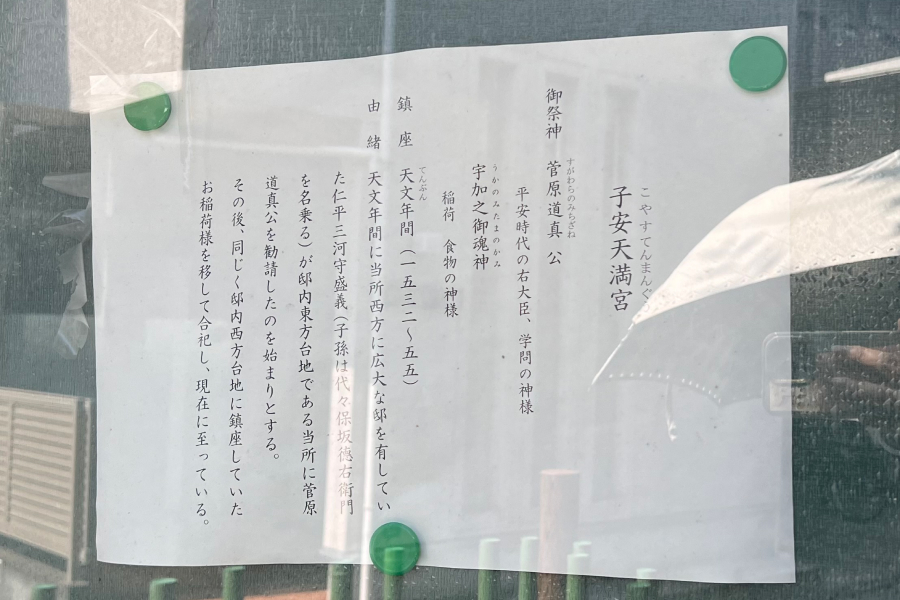 こやすてんまんぐ
子安天満宮
御祭神 菅原道真 公
すがわらのみちざね
平安時代の右大臣、学問の神様
宇加之御魂神
うかのみたまのかみ
稲荷 食物の神様
鎮座 天文年間(一五三二～五五)
てんぶん
由緒 天文年間に当所西方に広大な邸を有してい
た仁平三河守盛義(子孫は代々保坂徳右衛門
を名乗る)が邸内東方台地である当所に菅原
道真公を勧請したのを始まりとする。
その後、同じく邸内西方台地に鎮座していた
お稲荷様を移して合祀し、現在に至っている。